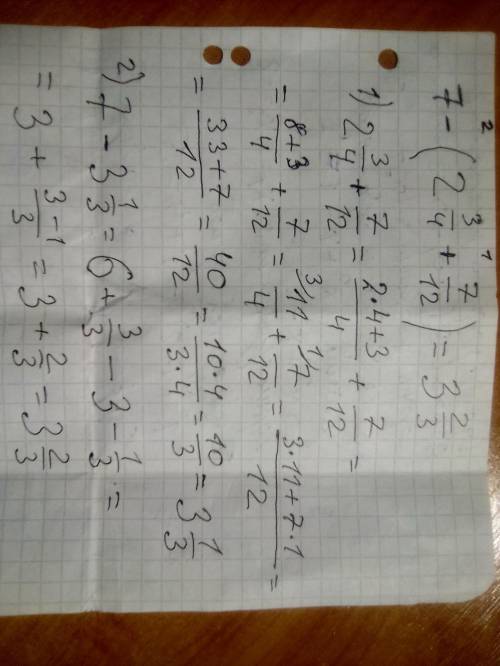 7 - (2 3/4 + 7/12) = 3 2/3
1) 2 3/4 + 7/12 = (2·4+3)/4 + 7/12 =
= (8+3)/4 + 7/12 = ³⁄11/4 + ¹⁄7/12 = (3·11+7·1)/12 =
= (33+7)/12 = 40/12 = (10·4)/(3·4) = 10/3 = 3 1/3
2) 7 - 3 1/3 = 6 + 3/3 - 3 - 1/3 =
= 3 + (3-1)/3 = 3 + 2/3 = 3 2/3